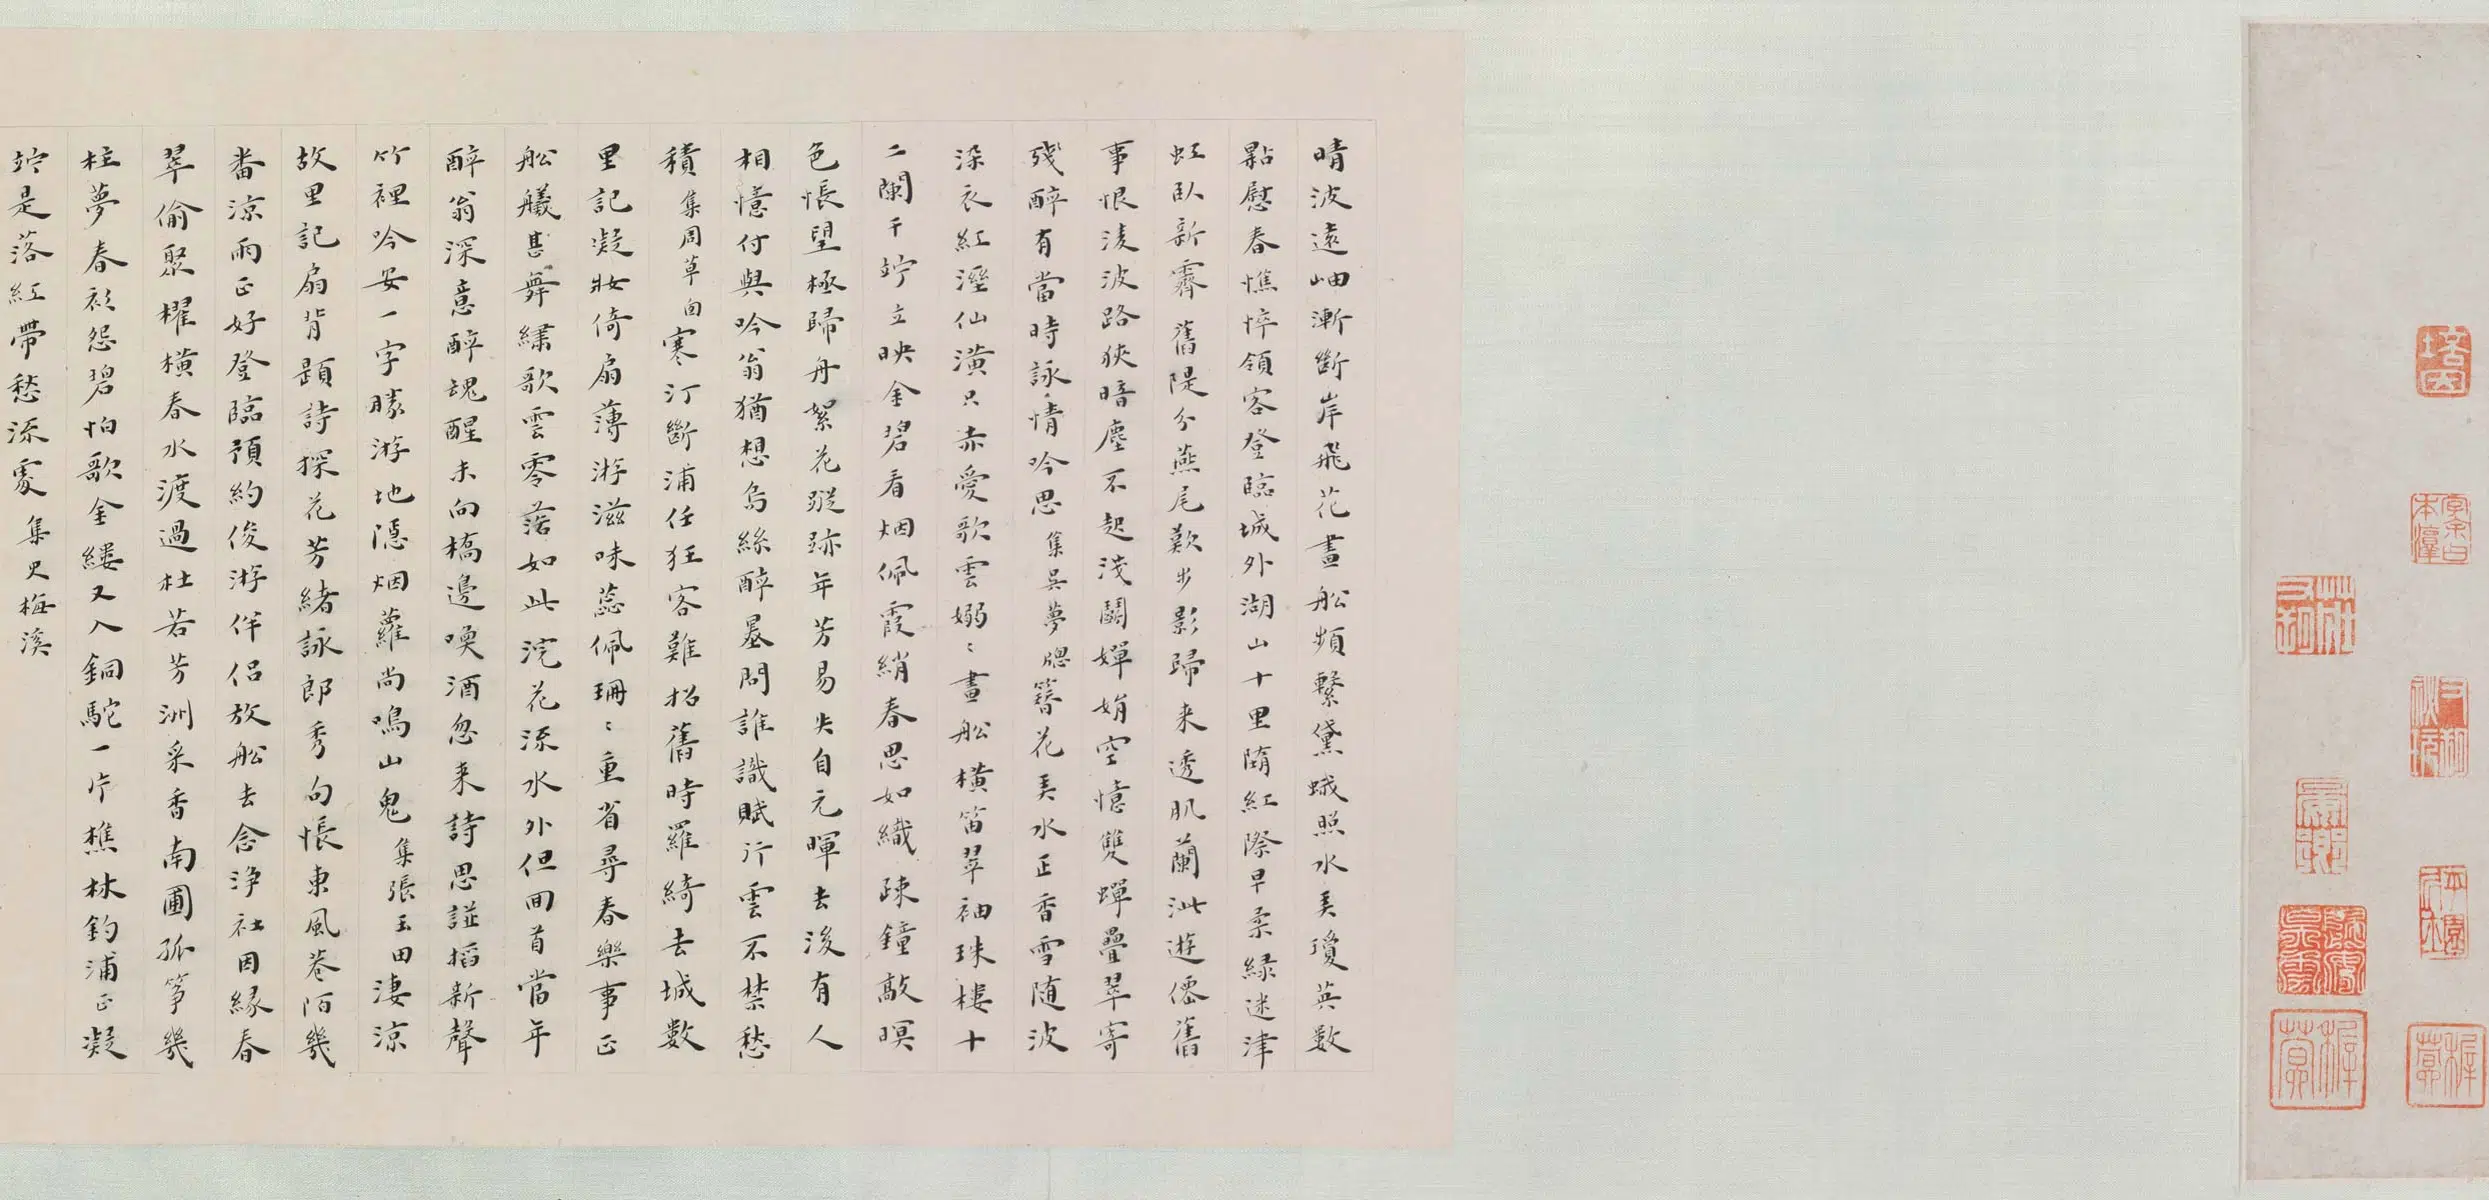 晴波遠岫漸斷岸飛花畫船頻繫黛蛾照水美瓊英數
點慰春憔悴領客登臨城外湖山十里隋紅際早柔綠迷津
虹臥新霽舊隄分燕尾歎步影歸來透肌蘭沘遊僊舊
事恨淩波路狹暗塵不起淺鬭嬋娟空憶雙蟬疊翠寄
殘醉有當時詠情吟思集吳夢窗簪花美水正香雪隨波
染衣紅溼仙潢只赤愛歌雲嫋〻畫船橫笛翠袖珠樓十
二闌干竚立映金碧看烟佩霞綃春思如織疎鐘敲暝
色悵望極歸舟絮花蹤跡年芳易失自元暉去後有人
相憶付與吟翁猶想烏絲醉墨問誰識賦行雲不禁愁
積集周草囱寒汀斷浦任狂客難招舊時羅綺去城數
里記凝妝倚扇薄游滋味蕊佩珊〻重省尋春樂事正
船艤甚舞繡歌雲零落如此浣花流水外但回首當年
醉翁深意醉魂醒未向橋邊喚酒忽來詩思謎搯新聲
竹裡吟安一字勝游地隱烟蘿尚鳴山鬼集張玉田淒涼
故里記扇背題詩探花芳緒詠郎秀句悵東風巷陌幾
番涼雨正好登臨預約俊游伴侶放船去念淨社因緣春
翠偷聚櫂橫春水渡過杜若芳洲采香南圃孤箏幾
柱夢春衫怨碧怕歌金縷又入銅駝一片樵林釣浦正凝
竚是落紅帶愁流處集史梅溪